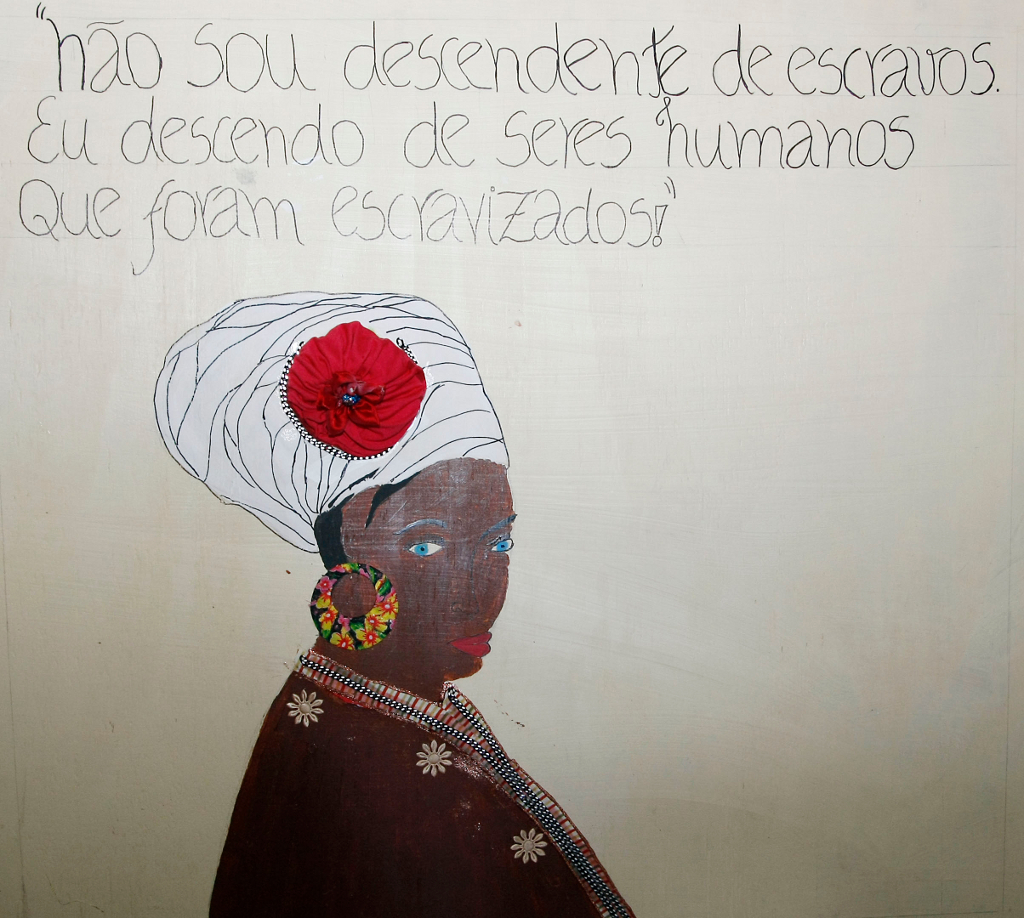 "não sou descendente de escravos.
Eu descendo de seres humanos
Que foram escravizados!"